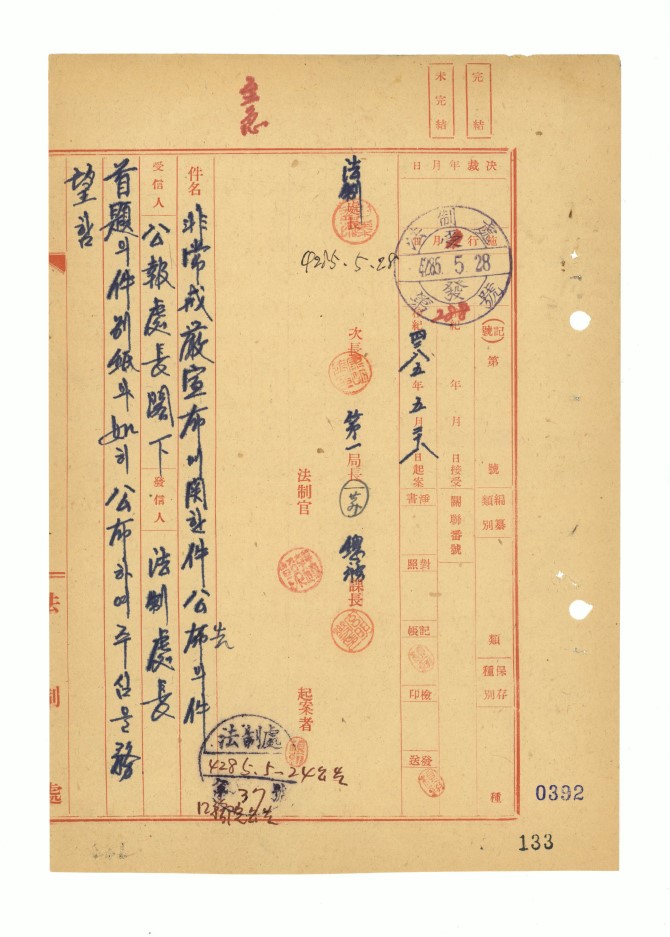 完結
未完結
至急
決裁年月日
施行
法制處
4285.5.28
發 第 號
288
記號
第 號
編纂類別
類
保存種別
種
年 月 日接受
關聯番號
檀紀四二八五年五月二八日起案
淨書
對照
記帳
檢印
發送
法制處長
4285.5.28
次長
第一局長
總務課長
法制官
起案者
件名 非常戒嚴宣布에關한件公布의件
告
受信人 公報處長閣下 發信人 法制處長
首題의件別紙와如히公布하여주심을務
望함
法制處
4285.5.24
37
國務院公告
法制處
0392
133